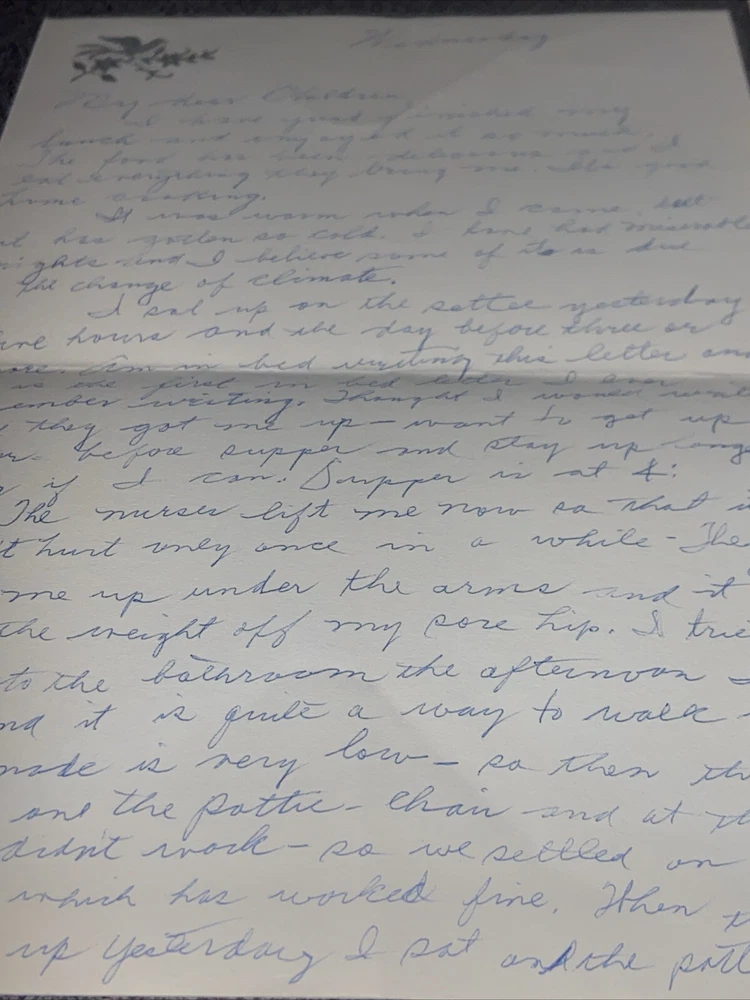 Wednesday
My dear Children,
I have just finished my
lunch and enjoyed it so much.
The food has been delicious and I
eat everything they bring me. It's good
home cooking.
It was warm when I came but
it has gotten so cold. I have had miserable
nights and I believe some of it is due
the change of climate.
I sat up on the settee yesterday
hours and the day before three or
Am in bed writing this letter and
is the first in bed letter I ever
ember writing. Thought I would write
they got me up - want to get up
before supper and stay up longe
if I can. Supper is at 4:
The nurses lift me now so that i
t hurt only once in a while - The
me up under the arms and it
the weight off my sore hip. I trie
to the bathroom the afternoon I
nd it is quite a way to walk
made is very low - so then th
one the pottie - chair and at th
didn't work - so we settled on
which has worked fine. When
up yesterday I sat on the pott